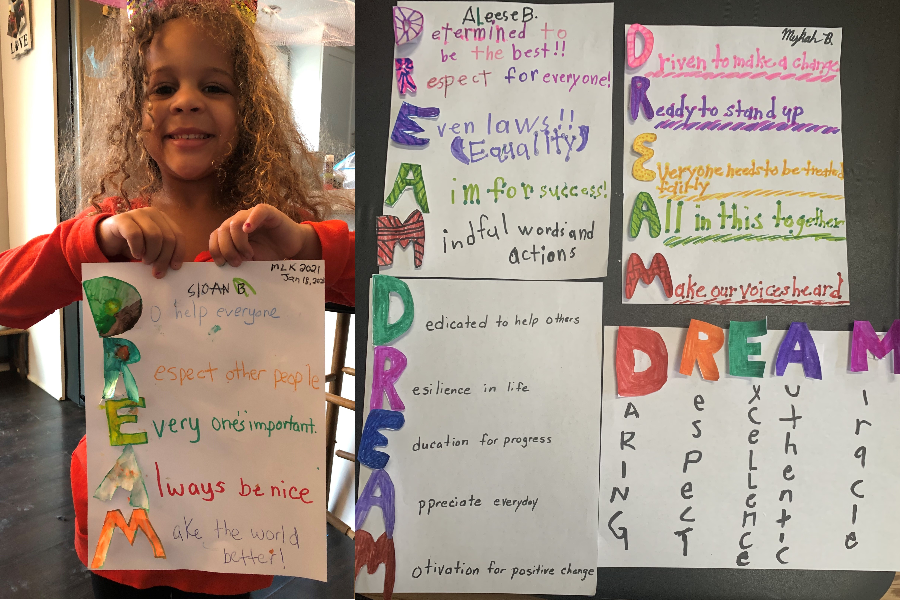 LOVE
MLK 2021
Jan 18, 2021
SLOAN B.
Do help everyone
Respect other people
Every one's important.
Always be nice
Make the world
better!
ALeese B.
Determined to
be the best!!
Respect for everyone!
Even laws!!
(Equality)
Aim for success!
Mindful words and
actions
Mykah B.
Driven to make a change
Ready to stand up
Everyone needs to be treated
fairly
All in this together
Make our voices heard
Dedicated to help others
Resilience in life
Education for progress
Appreciate everyday
Motivation for positive change
DARING
ResPecT
ExceLLence
Authentic
MIracle